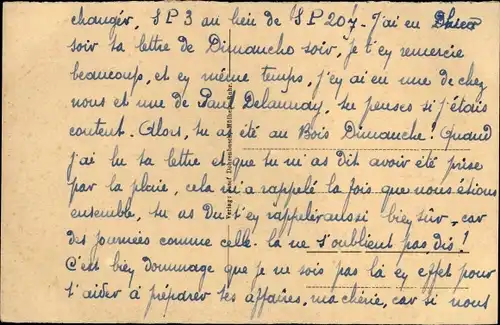 changer, SP3 au lieu de SP 207. J'ai eu
soir ta lettre de Dimanche soir, je t'ey remercie
beaucoup, et ey même temps, j'ey ai eu une de chez
nous et une de Paul Delaunay, tu penses si j'étais
content. Alors, tu as été au Bois Dimanche! Quand
j'ai lu ta lettre et que tu m'as dit avoir été prise
par la pluie, cela m'a rappelé la fois que nous étions
ensemble, tu as du t'ey rappeler aussi biey sûr car
des journées comme celle-là ne s'oublient pas, dis!
C'est biey dommage que je ne sois pas là ey effet pour
t'aider à préparer tes affaires, ma chérie, car si nous
Verlag: Josef